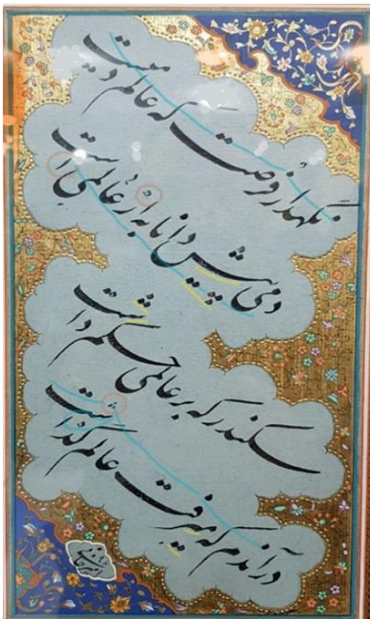 نگهدار فرصت که عالم دمیست
دمی پیش دانا به از عالمی است
سکندر که بر عالمی حکم داشت
در آندم که میرفت عالم گذاشت